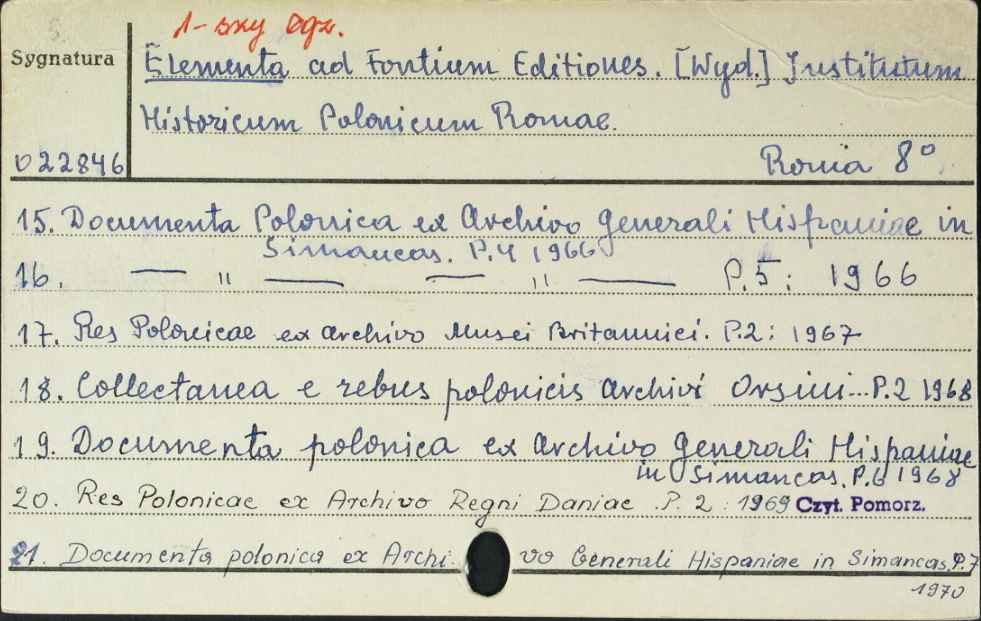 1-szy egz.
Sygnatura
Elementa ad Fontium Editiones. [Wyd.] Institutum
Historicum Polonicum Romae.
022846
Roma 8°
15. Documenta Polonica ex Archivo Generali Hispaniae in
Simancas. P.4 1966
16. — " — — " — P.5: 1966
17. Res Polonicae ex archivo Musei Britannici. P.2: 1967
18. Collectanea e rebus polonicis archivi Orsini...P.2 1968
19. Documenta polonica ex Archivo Generali Hispaniae
in Simancas. P.6 1968
20. Res Polonicae ex Archivo Regni Daniae P. 2: 1969 Czyt. Pomorz.
21. Documenta polonica ex Archivo Generali Hispaniae in Simancas. P.7
1970